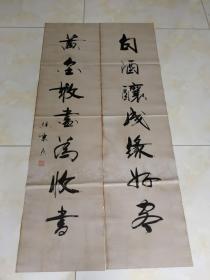 白酒酿成缘好客
黄金散尽为收书